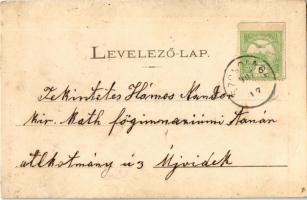 LEVELEZŐ-LAP.
Tekintetes Hámos Nandor
kir. Kath főgimnaziumi Tanar
u 3 Újvidek